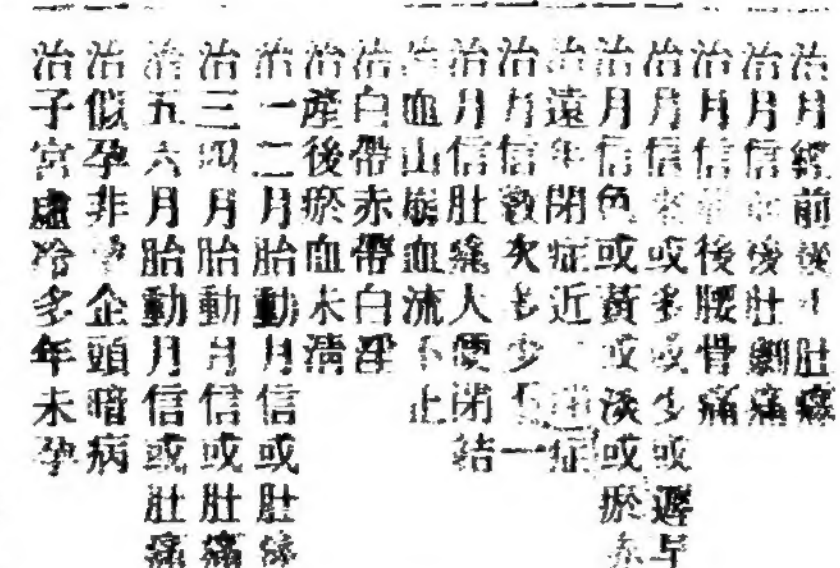 治月經前後肚痛
治月信後肚劇痛
治月信後腰骨痛
治月信來或多或少或遲早
治月信色或黃或淡或瘀赤
治遠年閉症近閉症
治月信數次多少一
治月信肚痛大便閉結
治血山崩血流不止
治白帶赤帶白淫
治產後瘀血未清
治一二月胎動月信或肚痛
治三四月胎動月信或肚痛
治五六月胎動月信或肚痛
治似孕非孕企頭暗病
治子宮虛冷多年未孕